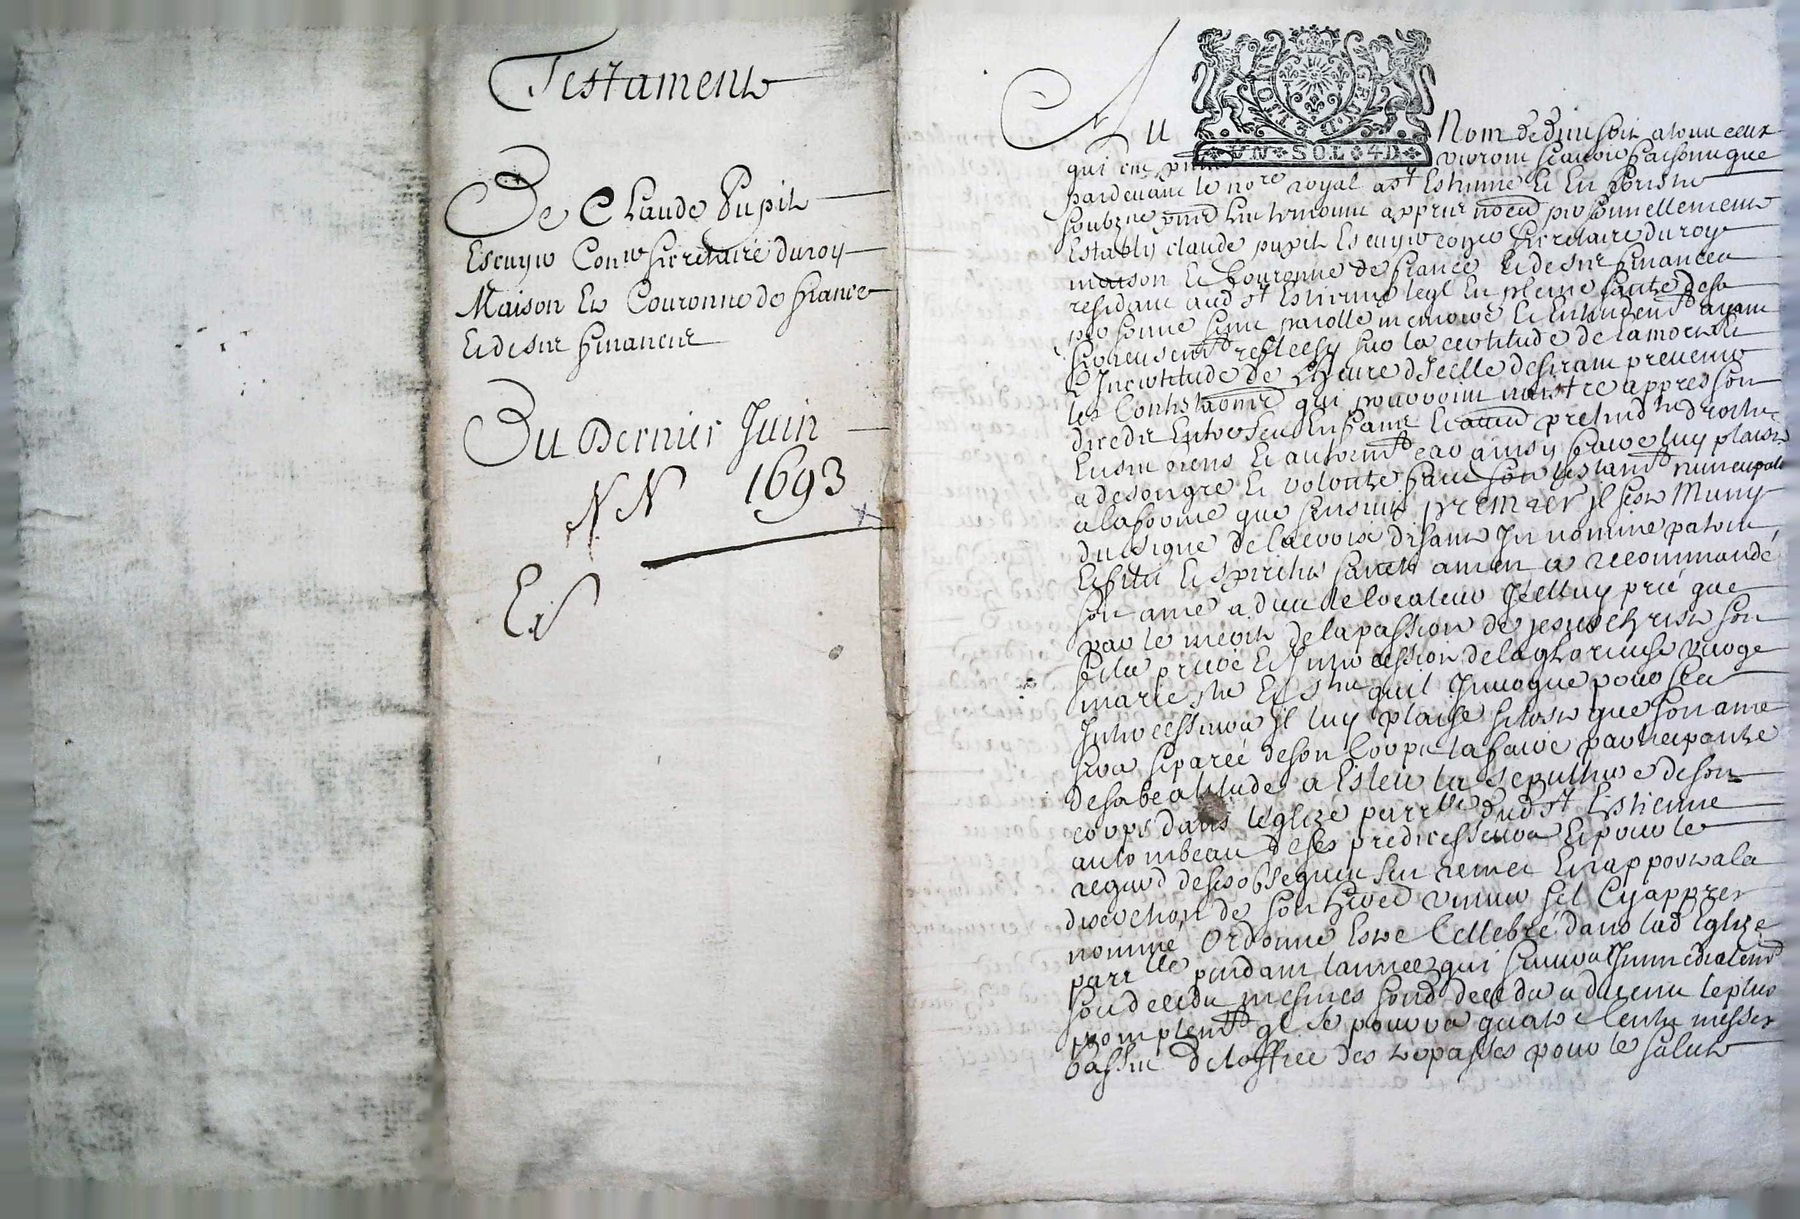 Testament
De Claude Pupil
Escuyer Con.er Secretaire du roy
Maison Et Couronne de france
Et de ses finances
Du Dernier Juin
NN 1693
GENER DET LION
UN SOL 4D
Au Nom de dieu soit a tous ceux
qui ces verront scavoir faisons que
pardevant le no.re royal a St Estienne Et En forisme
soubzne Et tesmoins appres nomes personnellement
Estably claude pupil Escuyer con.er secretaire du roy
maison Et Couronne de france Et de ses finances
residant aud St Estienne leql En pleine sante de sa
personne sens parolle memoire Et Entendem.t ayant
serieusem.t reflechy sur la certitude de la mort Et
Incertitude de L'heure d'Icelle desirant prevenir
les Contestaons qui pouvoint naistre appres son
deces Entre ses Enfants Et aues pretend.ts droits
En ses biens Et autrem.t car ainsy faire luy plaist
a de son gre Et volonte faict son testam.t nuncupatif
a la forme que sensuit premier Il sest Muny
du signe de la croix disant In nomine patris
Et filii Et spiritus sancti amen a recommandé
son ame a dieu le createur Icelluy prié que
par le merite de la passion de jesus christ son
fils la priere Et Intercession de la glorieuse vierge
marie Et quil Invoque pour ses
Intercesseurs Il luy plaise sitost que son ame
sera separée de son Corps la faire participante
de sa beatitude a Esleu la sepulture de son
corps dans leglize parr.lle dud St Estienne
au tombeau de ses predecesseurs Et pour le
regard de ses obseques sen remet Et rapporte a la
discretion de son heritier universel Cy appres
nommé Ordonne Estre Cellebré dans lad Eglize
parr.lle pendant lannee qui suivra Immediatem.t
son deces du mesmes jour de deces a devenu le plus
promptem.t ql se pourra quatre Cents messes
basses de loffice des trepassés pour le salut